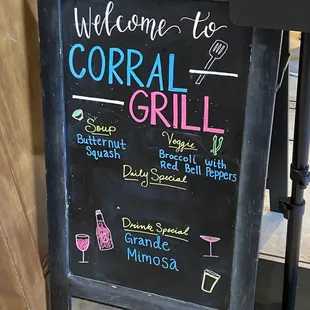 Welcome to
CORRAL
GRILL
Soup
Butternut
Squash
Veggie
Broccoli with
Red Bell Peppers
Daily Special
Drink Special
Grande
Mimosa